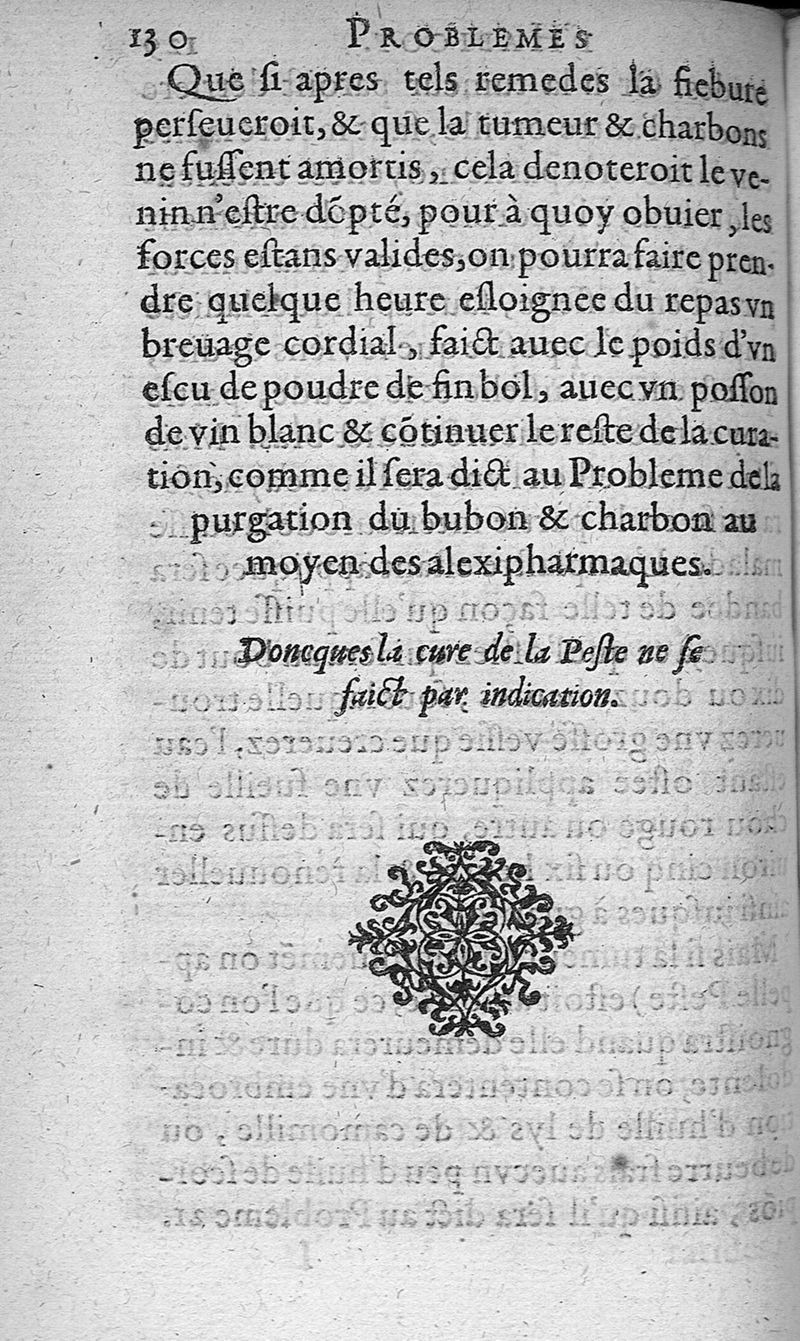 130 PROBLEMES
Que ſi apres tels remedes la fiebure
perſeueroit, & que la tumeur & charbons
ne fuſſent amortis, cela denoteroit le ve-
nin n'eſtre dõpté, pour à quoy obuier, les
forces eſtans valides, on pourra faire pren-
dre quelque heure eſloignee du repas vn
breuage cordial, faict auec le poids d'vn
eſcu de poudre de fin bol, auec vn poſſon
de vin blanc & cõtinuer le reſte de la cura-
tion, comme il ſera dict au Probleme de la
purgation du bubon & charbon au
moyen des alexipharmaques.
Doncques la cure de la Peſte ne ſe
faict par indication.